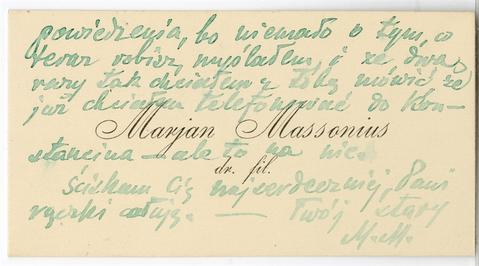 powiedzenia, bo niemało o tym, co
teraz robisz, myślałem, i że dwa
razy tak chciałem z tobą mówić, że
już chciałem telefonować do Kon-
Marjan Massonius
stancina — ale to na nic.
dr. fil.
Ściskam Cię najserdeczniej, Pani
rączki całuję. — Twój stary
M.M.